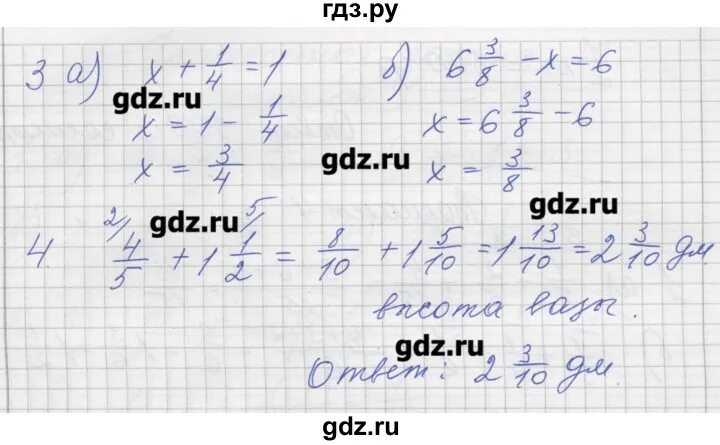 гдз.ру
3 а) x + 1/4 = 1 б) 6 3/8 - x = 6
gdz.ru
x = 1 - 1/4 x = 6 3/8 - 6
gdz.ru
x = 3/4 x = 3/8
gdz.ru
gdz.ru
4 2/ 4/5 + 1 5/ 1/2 = 8/10 + 1 5/10 = 1 13/10 = 2 3/10 дм
высота вазы.
gdz.ru
Ответ: 2 3/10 дм.